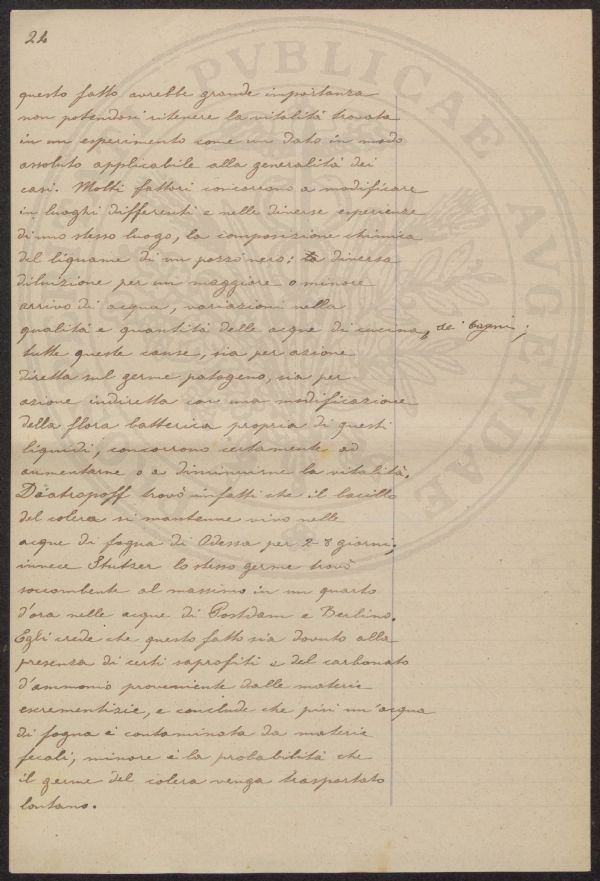 24
questo fatto avrebbe grande importanza
non potendosi ritenere la vitalità trovata
in un esperimento come un dato in modo
assoluto applicabile alla generalità dei
casi. Molti fattori concorrono a modificare
in luoghi differenti e nelle diverse esperienze
di uno stesso luogo, la composizione chimica
del liquame di un pozzo nero: la diversa
diluizione per un maggiore o minore
arrivo di acqua, variazioni nella
qualità e quantità delle acque di cucina, de' bagni;
tutte queste cause, sia per azione
diretta sul germe patogeno, sia per
azione indiretta con una modificazione
della flora batterica propria di questi
liquidi, concorrono certamente ad
aumentarne o a diminuirne la vitalità.
Däatropoff trovò infatti che il bacillo
del colera si mantenne vivo nelle
acque di fogna di Odessa per 2-8 giorni;
invece Stutzer lo stesso germe trovò
soccombente al massimo in un quarto
d'ora nelle acque di Postdam e Berlino.
Egli crede che questo fatto sia dovuto alla
presenza di certi saprofiti e del carbonato
d'ammonio proveniente dalle materie
escrementizie, e conclude che più un'acqua
di fogna è contaminata da materie
fecali, minore è la probabilità che
il germe del colera venga trasportato
lontano.
PVBLICAE AVGENDAE